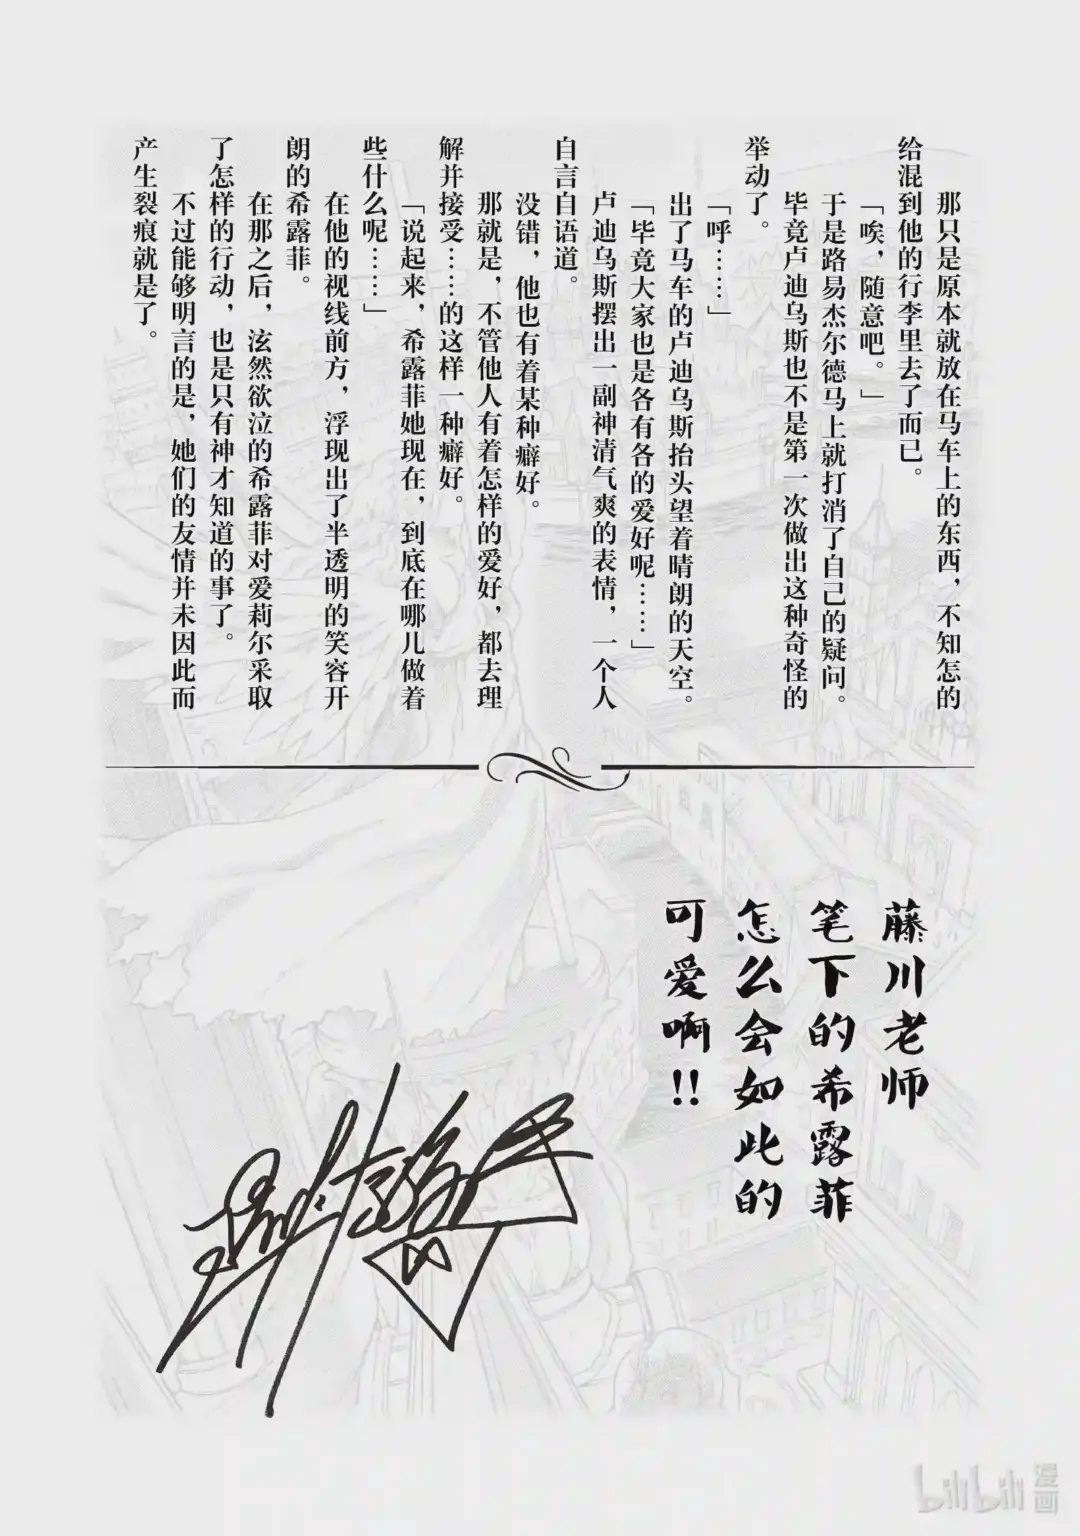 那只是原本就放在马车上的东西，不知怎的
给混到他的行李里去了而已。
「唉，随意吧。」
于是路易杰尔德马上就打消了自己的疑问。
毕竟卢迪乌斯也不是第一次做出这种奇怪的
举动了。
「呼……」
出了马车的卢迪乌斯抬头望着晴朗的天空。
「毕竟大家也是各有各的爱好呢……」
卢迪乌斯摆出一副神清气爽的表情，一个人
自言自语道。
没错，他也有着某种癖好。
那就是，不管他人有着怎样的爱好，都去理
解并接受……的这样一种癖好。
「说起来，希露菲她现在，到底在哪儿做着
些什么呢……」
在他的视线前方，浮现出了半透明的笑容开
朗的希露菲。
在那之后，泫然欲泣的希露菲对爱莉尔采取
了怎样的行动，也是只有神才知道的事了。
不过能够明言的是，她们的友情并未因此而
产生裂痕就是了。
藤川老师
笔下的希露菲
怎么会如此的
可爱啊!!
bilibili
漫画